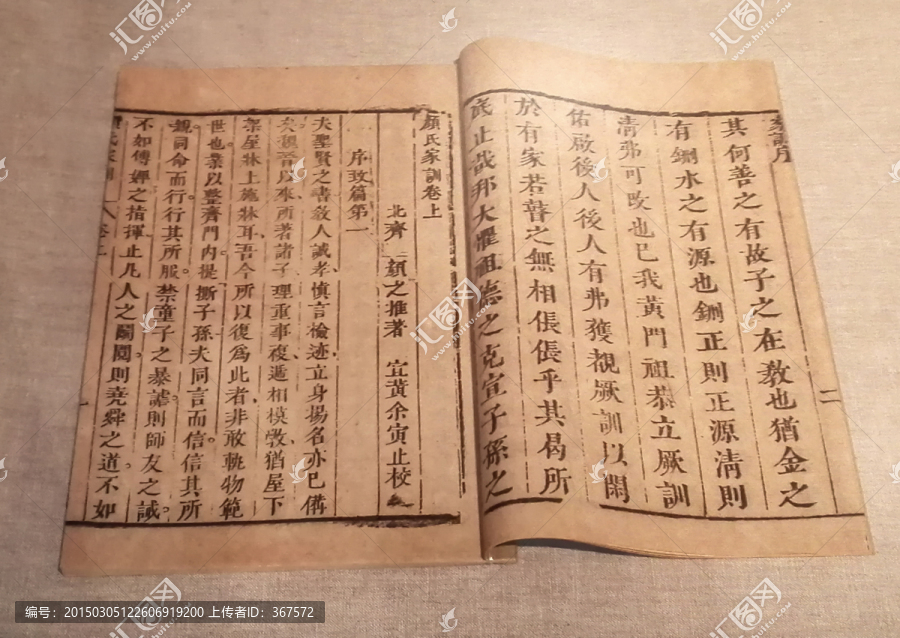 其何善之有故子之在教也猶金之
有鉶水之有源也鉶正則正源清則
清弗可改也已我黃門祖恭立厥訓
佑啟後人後人有弗獲覩厥訓以閑
於有家若瞽之無相倀倀乎其曷所
底止哉邦大懼祖德之克宣子孫之
二
顏氏家訓卷上
北齊 顏之推著 宜黃余寅止校
序致篇第一
夫聖賢之書教人誠孝慎言檢迹立身揚名亦已備
矣魏晉以來所著諸子理重事複遞相模斆猶屋下
架屋牀上施牀耳吾今所以復為此者非敢軌物範
世也業以整齊門內提撕子孫夫同言而信信其所
親同命而行行其所服禁童子之暴謔則師友之誡
不如傅婢之指揮止凡人之鬬鬩則堯舜之道不如
汇图网
www.huitu.com
编号：20150305122606919200 上传者ID：367572